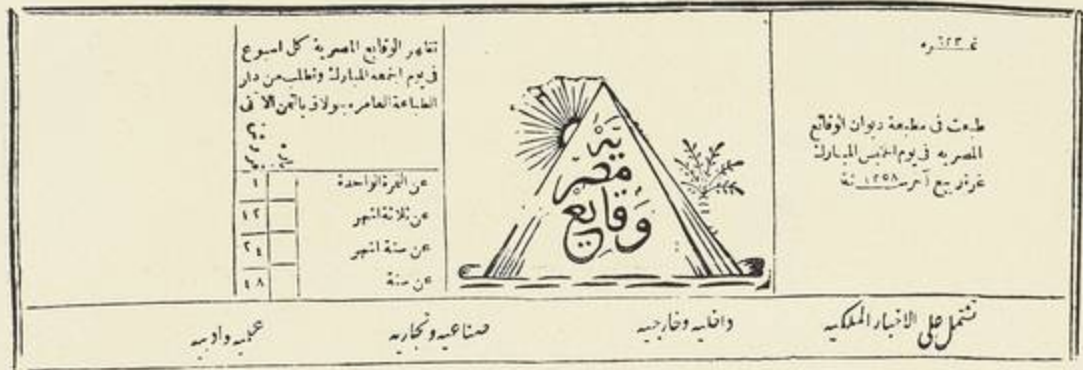 غ ٦٢٣ ره
طبعت فى مطبعة ديوان الوقائع
المصريه فى يوم الخميس المبارك
غرة ربيع آخر سـ ١٢٥٨ ـنة
وقايع
مصر
يه
تظهر الوقايع المصرية كل اسبوع
فى يوم الجمعه المبارك وتطلب من دار
الطباعة العامره ببولاق بالثمن الآتى
عن النمرة الواحدة ١
عن ثلاثة اشهر ١٢
عن ستة اشهر ٢٤
عن سنة ٤٨
تشتمل على الاخبار الملكيه داخليه وخارجيه صناعيه وتجاريه علميه وادبيه